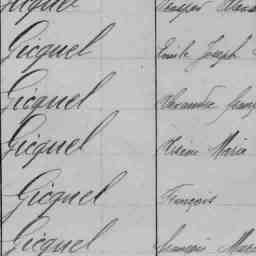 Gicquel
Gicquel Emile Joseph
Gicquel Alexandre
Gicquel Marie
Gicquel François
Gicquel François Marie